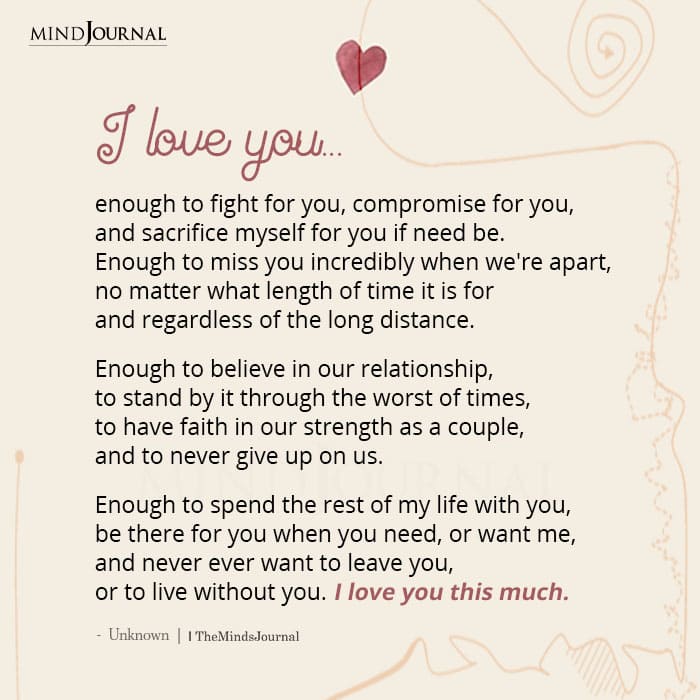 MINDJOURNAL
I love you...
enough to fight for you, compromise for you,
and sacrifice myself for you if need be.
Enough to miss you incredibly when we're apart,
no matter what length of time it is for
and regardless of the long distance.
Enough to believe in our relationship,
to stand by it through the worst of times,
to have faith in our strength as a couple,
and to never give up on us.
MINDJOURNAL
Enough to spend the rest of my life with you,
be there for you when you need, or want me,
and never ever want to leave you,
or to live without you. I love you this much.
- Unknown | I TheMindsJournal